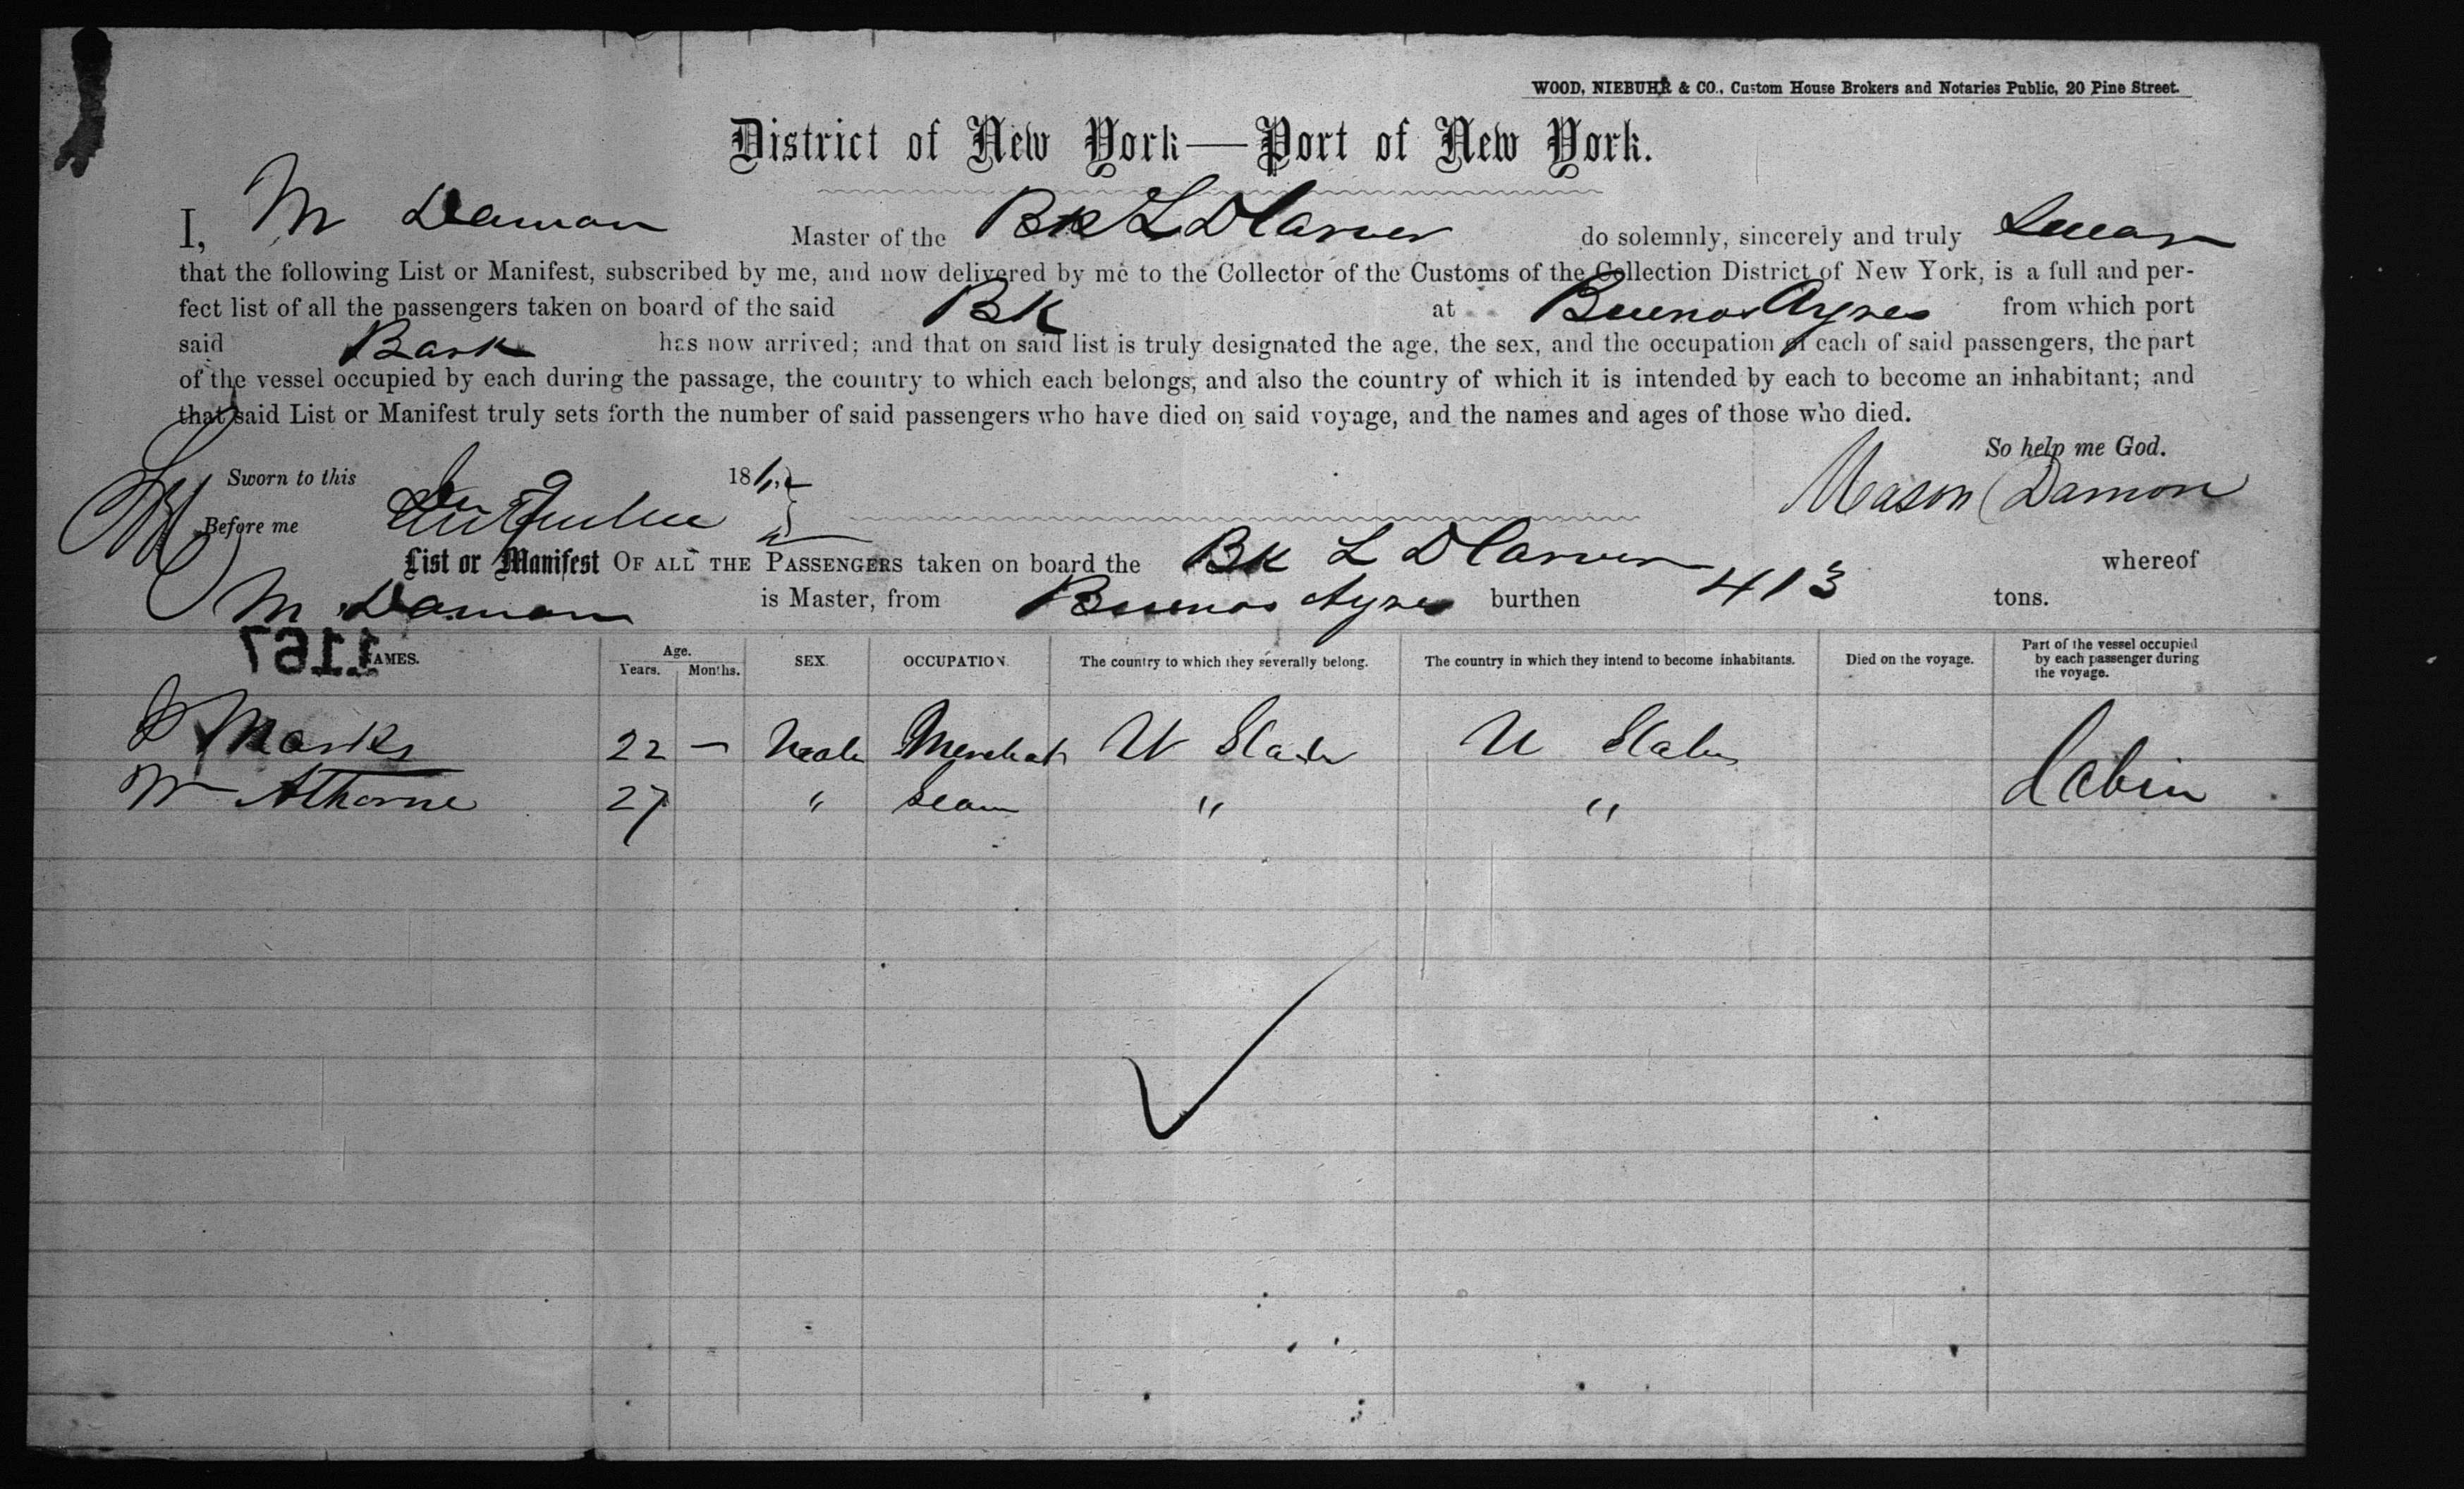 WOOD, NIEBUHR & CO., Custom House Brokers and Notaries Public, 20 Pine Street.
District of New York—Port of New York.
I, M Damon Master of the Bk L D Carver do solemnly, sincerely and truly Swear
that the following List or Manifest, subscribed by me, and now delivered by me to the Collector of the Customs of the Collection District of New York, is a full and per-
fect list of all the passengers taken on board of the said Bk at Buenos Ayres from which port
said Bark has now arrived; and that on said list is truly designated the age, the sex, and the occupation of each of said passengers, the part
of the vessel occupied by each during the passage, the country to which each belongs, and also the country of which it is intended by each to become an inhabitant; and
that said List or Manifest truly sets forth the number of said passengers who have died on said voyage, and the names and ages of those who died.
So help me God.
Sworn to this 18
Before me
Mason Damon
List or Manifest OF ALL THE PASSENGERS taken on board the Bk L D Carver whereof
M Damon is Master, from Buenos Ayres burthen 413 tons.
1167
NAMES. Age. Years. Months. SEX. OCCUPATION. The country to which they severally belong. The country in which they intend to become inhabitants. Died on the voyage. Part of the vessel occupied by each passenger during the voyage.
Marks 22 — Male Merchat U States U States
Wm Athorne 27 " Seam " " Cabin